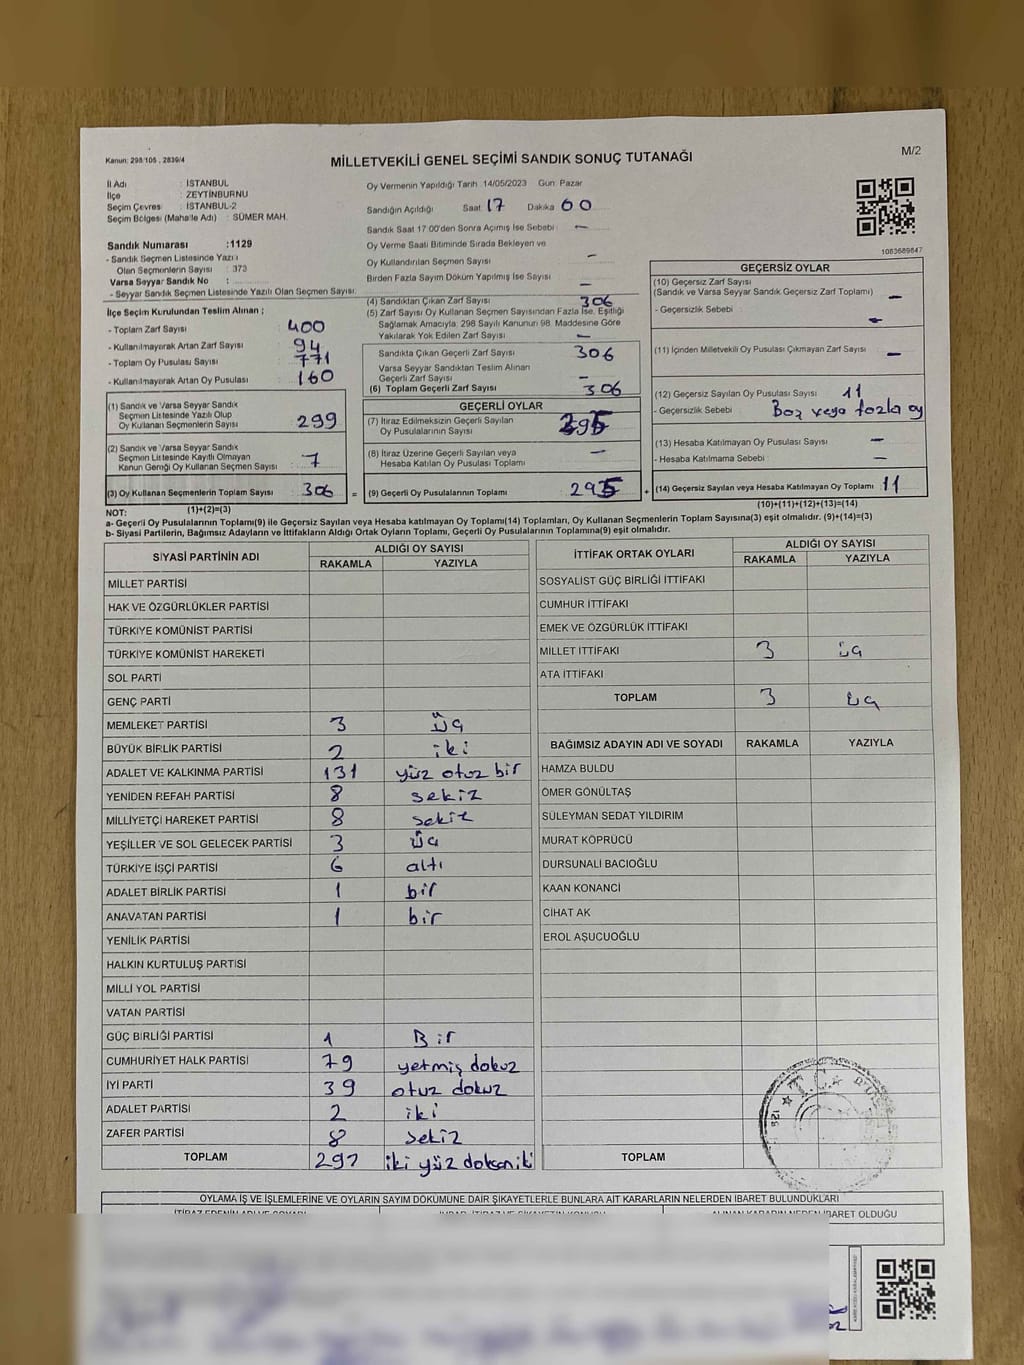 Kanun: 298/105 , 2839/4
MİLLETVEKİLİ GENEL SEÇİMİ SANDIK SONUÇ TUTANAĞI
M/2
İl Adı : İSTANBUL
İlçe : ZEYTİNBURNU
Seçim Çevresi : İSTANBUL-2
Seçim Bölgesi (Mahalle Adı) : SÜMER MAH.
Sandık Numarası :1129
- Sandık Seçmen Listesinde Yazılı
Olan Seçmenlerin Sayısı : 373
Varsa Seyyar Sandık No :
- Seyyar Sandık Seçmen Listesinde Yazılı Olan Seçmen Sayısı:
Oy Vermenin Yapıldığı Tarih :14/05/2023 Gün: Pazar
Sandığın Açıldığı Saat 17 Dakika 60
Sandık Saat 17.00'den Sonra Açılmış İse Sebebi : —
Oy Verme Saati Bitiminde Sırada Bekleyen ve
Oy Kullandırılan Seçmen Sayısı —
Birden Fazla Sayım Döküm Yapılmış İse Sayısı —
1063689847
İlçe Seçim Kurulundan Teslim Alınan ;
- Toplam Zarf Sayısı 400
- Kullanılmayarak Artan Zarf Sayısı 94
- Toplam Oy Pusulası Sayısı 771
- Kullanılmayarak Artan Oy Pusulası 160
(1) Sandık ve Varsa Seyyar Sandık
Seçmen Listesinde Yazılı Olup
Oy Kullanan Seçmenlerin Sayısı 299
(2) Sandık ve Varsa Seyyar Sandık
Seçmen Listesinde Kayıtlı Olmayan
Kanun Gereği Oy Kullanan Seçmen Sayısı 7
(3) Oy Kullanan Seçmenlerin Toplam Sayısı 306 =
(4) Sandıktan Çıkan Zarf Sayısı 306
(5) Zarf Sayısı Oy Kullanan Seçmen Sayısından Fazla İse, Eşitliği
Sağlamak Amacıyla, 298 Sayılı Kanunun 98. Maddesine Göre
Yakılarak Yok Edilen Zarf Sayısı —
Sandıkta Çıkan Geçerli Zarf Sayısı 306
Varsa Seyyar Sandıktan Teslim Alınan
Geçerli Zarf Sayısı —
(6) Toplam Geçerli Zarf Sayısı 306
GEÇERLİ OYLAR
(7) İtiraz Edilmeksizin Geçerli Sayılan
Oy Pusulalarının Sayısı 295
(8) İtiraz Üzerine Geçerli Sayılan veya
Hesaba Katılan Oy Pusulası Toplamı —
(9) Geçerli Oy Pusulalarının Toplamı 295 +
GEÇERSİZ OYLAR
(10) Geçersiz Zarf Sayısı
(Sandık ve Varsa Seyyar Sandık Geçersiz Zarf Toplamı) —
- Geçersizlik Sebebi : —
(11) İçinden Milletvekili Oy Pusulası Çıkmayan Zarf Sayısı —
(12) Geçersiz Sayılan Oy Pusulası Sayısı 11
- Geçersizlik Sebebi : Boz veya fazla oy
(13) Hesaba Katılmayan Oy Pusulası Sayısı —
- Hesaba Katılmama Sebebi : —
(14) Geçersiz Sayılan veya Hesaba Katılmayan Oy Toplamı 11
NOT: (1)+(2)=(3) (10)+(11)+(12)+(13)=(14)
a- Geçerli Oy Pusulalarının Toplamı(9) ile Geçersiz Sayılan veya Hesaba katılmayan Oy Toplamı(14) Toplamları, Oy Kullanan Seçmenlerin Toplam Sayısına(3) eşit olmalıdır. (9)+(14)=(3)
b- Siyasi Partilerin, Bağımsız Adayların ve İttifakların Aldığı Ortak Oyların Toplamı, Geçerli Oy Pusulalarının Toplamına(9) eşit olmalıdır.
SİYASİ PARTİNİN ADI ALDIĞI OY SAYISI
RAKAMLA YAZIYLA
MİLLET PARTİSİ
HAK VE ÖZGÜRLÜKLER PARTİSİ
TÜRKİYE KOMÜNİST PARTİSİ
TÜRKİYE KOMÜNİST HAREKETİ
SOL PARTİ
GENÇ PARTİ
MEMLEKET PARTİSİ 3 üç
BÜYÜK BİRLİK PARTİSİ 2 iki
ADALET VE KALKINMA PARTİSİ 131 yüz otuz bir
YENİDEN REFAH PARTİSİ 8 sekiz
MİLLİYETÇİ HAREKET PARTİSİ 8 sekiz
YEŞİLLER VE SOL GELECEK PARTİSİ 3 üç
TÜRKİYE İŞÇİ PARTİSİ 6 altı
ADALET BİRLİK PARTİSİ 1 bir
ANAVATAN PARTİSİ 1 bir
YENİLİK PARTİSİ
HALKIN KURTULUŞ PARTİSİ
MİLLİ YOL PARTİSİ
VATAN PARTİSİ
GÜÇ BİRLİĞİ PARTİSİ 1 Bir
CUMHURİYET HALK PARTİSİ 79 yetmiş dokuz
İYİ PARTİ 39 otuz dokuz
ADALET PARTİSİ 2 iki
ZAFER PARTİSİ 8 sekiz
TOPLAM 292 iki yüz doksan iki
İTTİFAK ORTAK OYLARI ALDIĞI OY SAYISI
RAKAMLA YAZIYLA
SOSYALİST GÜÇ BİRLİĞİ İTTİFAKI
CUMHUR İTTİFAKI
EMEK VE ÖZGÜRLÜK İTTİFAKI
MİLLET İTTİFAKI 3 üç
ATA İTTİFAKI
TOPLAM 3 üç
BAĞIMSIZ ADAYIN ADI VE SOYADI RAKAMLA YAZIYLA
HAMZA BULDU
ÖMER GÖNÜLTAŞ
SÜLEYMAN SEDAT YILDIRIM
MURAT KÖPRÜCÜ
DURSUNALİ BACIOĞLU
KAAN KONANCİ
CİHAT AK
EROL AŞUCUOĞLU
TOPLAM
T.C.
OYLAMA İŞ VE İŞLEMLERİNE VE OYLARIN SAYIM DÖKÜMÜNE DAİR ŞİKAYETLERLE BUNLARA AİT KARARLARIN NELERDEN İBARET BULUNDUKLARI
ALINAN KARARIN NEDEN İBARET OLDUĞU